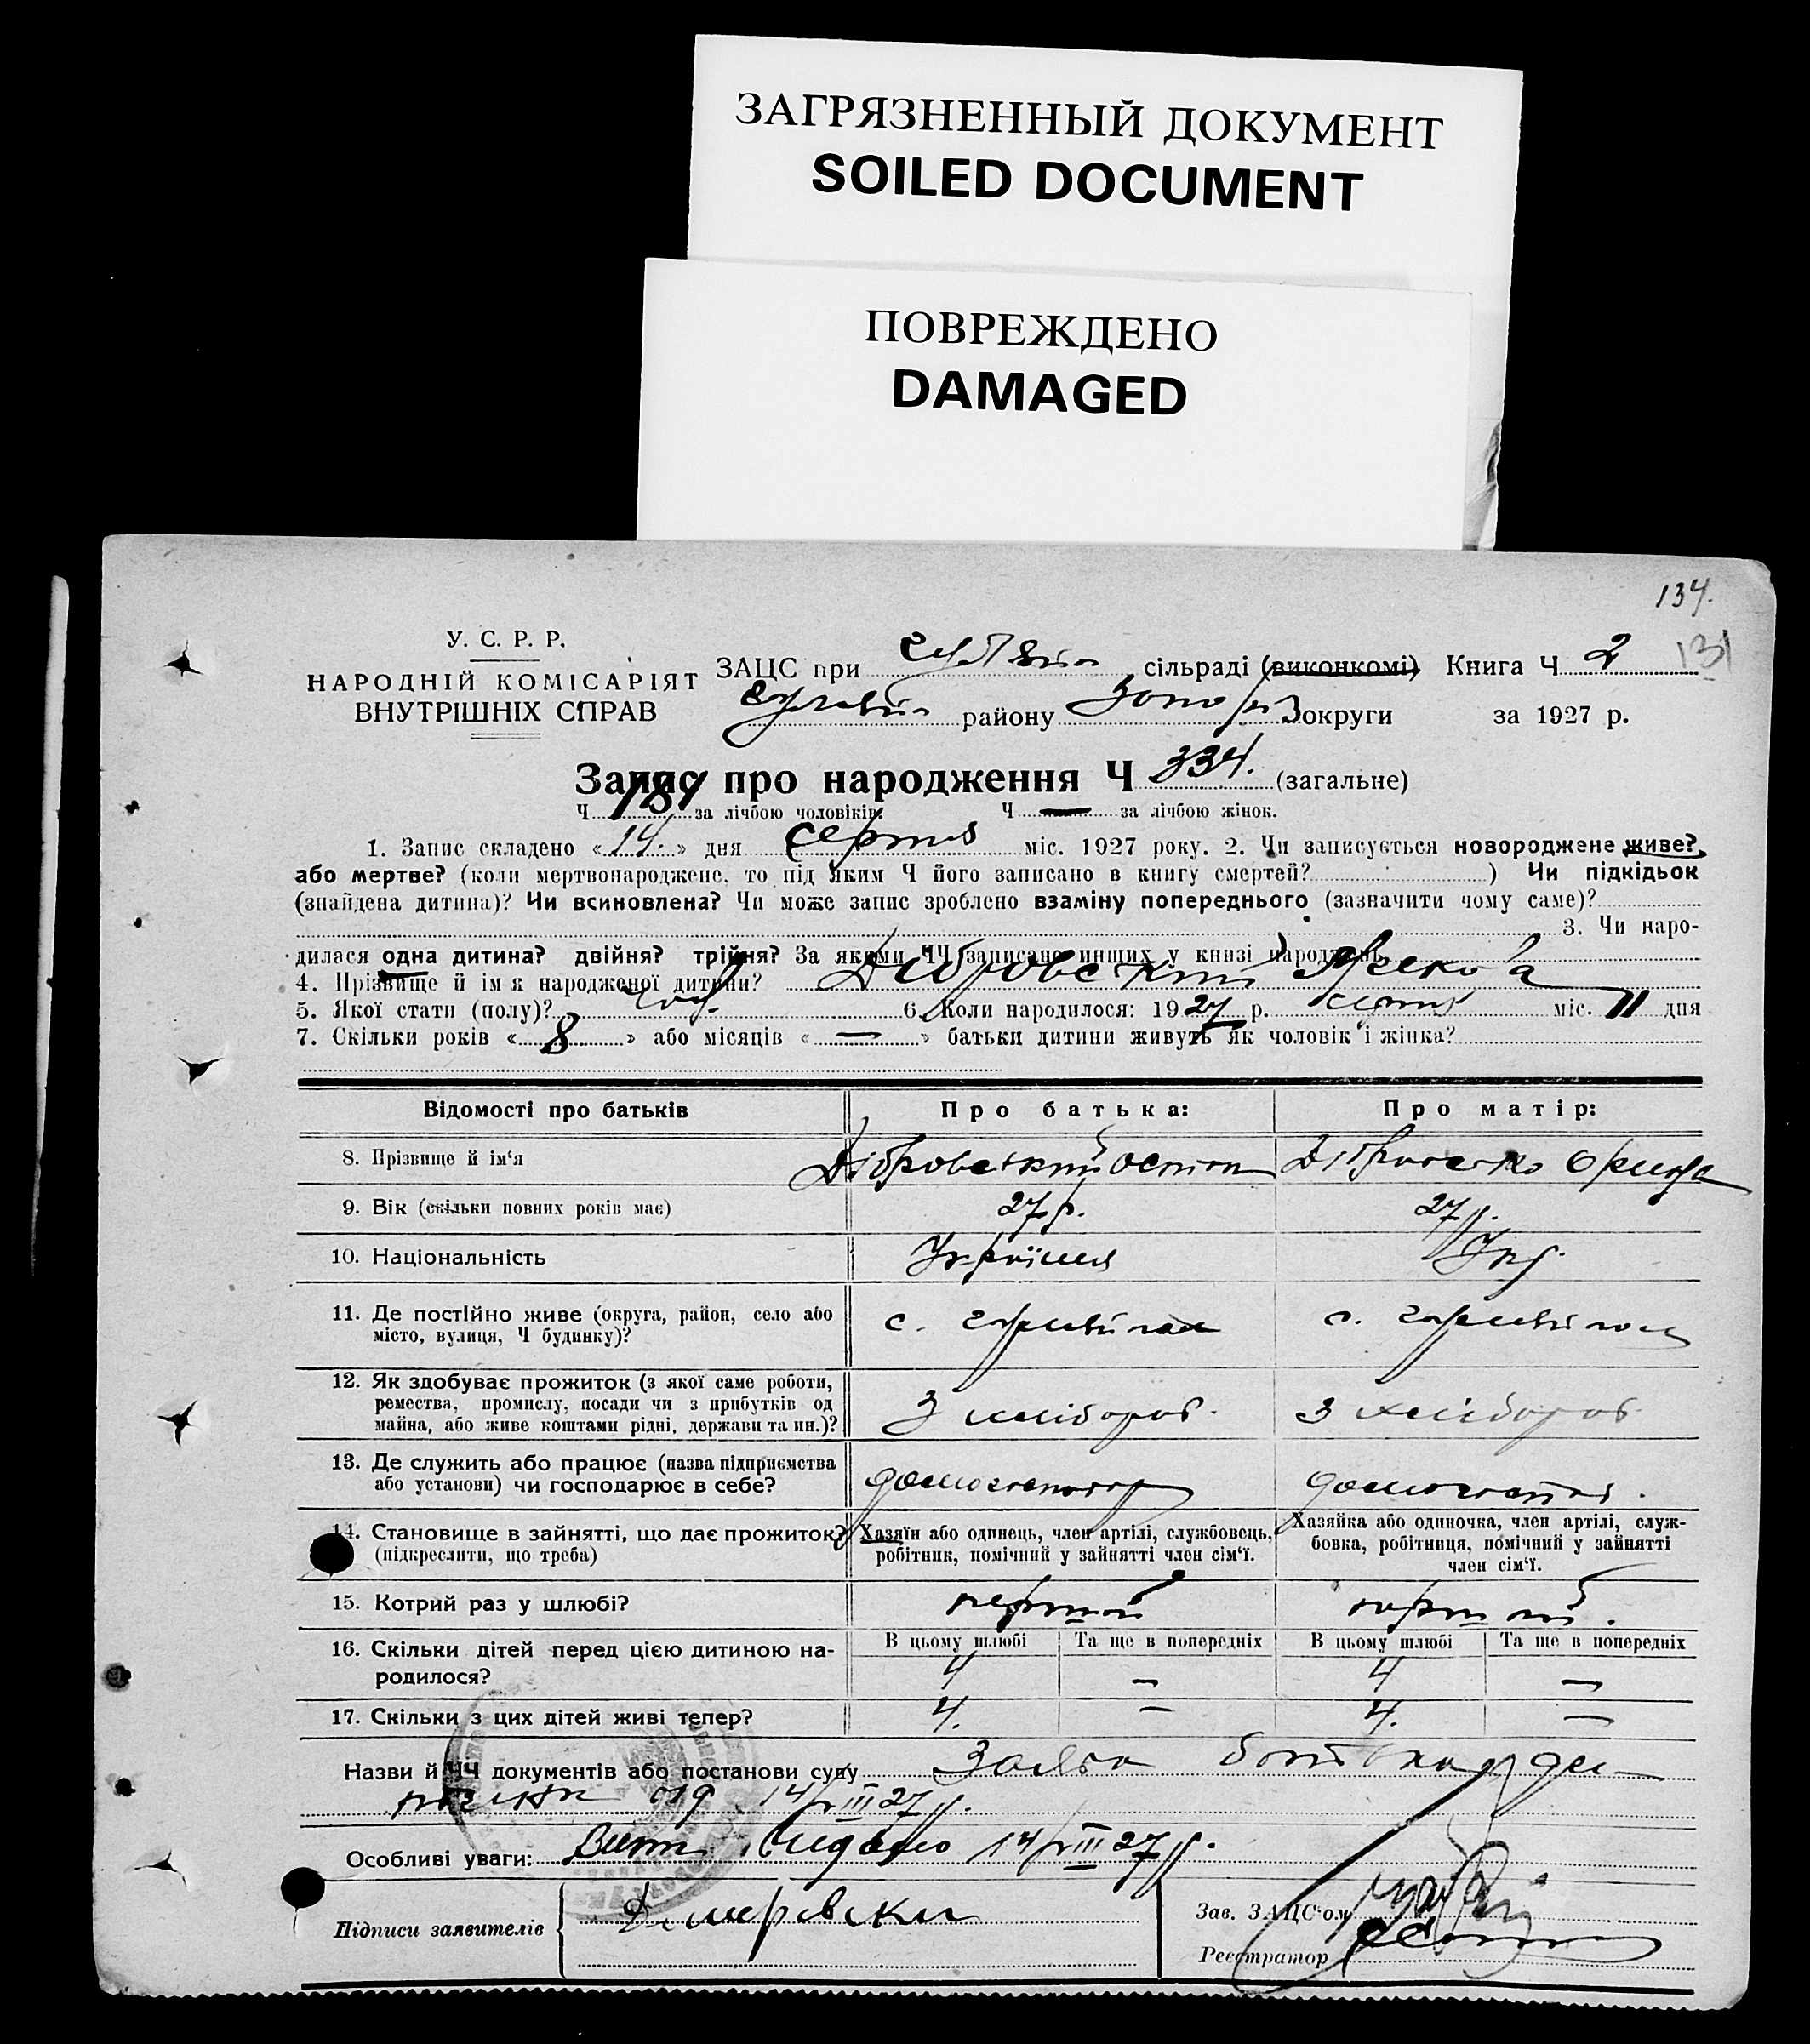 ЗАГРЯЗНЕННЫЙ ДОКУМЕНТ
SOILED DOCUMENT
ПОВРЕЖДЕНО
DAMAGED
134.
131
У. С. Р. Р.
НАРОДНІЙ КОМІСАРІЯТ
ВНУТРІШНІХ СПРАВ
ЗАЦС при сільраді (виконкомі) Книга Ч 2
району округи за 1927 р.
Запис про народження Ч 334. (загальне)
Ч 181 за лічбою чоловіків. Ч — за лічбою жінок.
1. Запис складено «14.» дня серпня міс. 1927 року. 2. Чи записується новороджене живе?
або мертве? (коли мертвонароджене, то під яким Ч його записано в книгу смертей? ) Чи підкідьок
(знайдена дитина)? Чи всиновлена? Чи може запис зроблено взаміну попереднього (зазначити чому саме)?
3. Чи наро-
дилася одна дитина? двійня? трійня? За якими ЧЧ записано инших у книзі народжень
4. Прізвище й ім'я народженої дитини? Дібровський
5. Якої стати (полу)? чол. 6. Коли народилося: 1927 р. серпня міс. 11 дня
7. Скільки років «8» або місяців «—» батьки дитини живуть як чоловік і жінка?
Відомості про батьків Про батька: Про матір:
8. Прізвище й ім'я Дібровський Остап Дібровська
9. Вік (скільки повних років має) 27 р. 27 р.
10. Національність Україн Укр.
11. Де постійно живе (округа, район, село або
місто, вулиця, Ч будинку)? с. с.
12. Як здобуває прожиток (з якої саме роботи,
ремества, промислу, посади чи з прибутків од
майна, або живе коштами рідні, держави та ин.)? З хлібороб. З хлібороб
13. Де служить або працює (назва підприємства
або установи) чи господарює в себе? домогосподар домогоспод.
14. Становище в зайнятті, що дає прожиток?
(підкреслити, що треба)
Хазяїн або одинець, член артілі, службовець,
робітник, помічний у зайнятті член сім'ї.
Хазяйка або одиночка, член артілі, служ-
бовка, робітниця, помічний у зайнятті
член сім'ї.
15. Котрий раз у шлюбі? перший перший.
В цьому шлюбі Та ще в попередніх В цьому шлюбі Та ще в попередніх
16. Скільки дітей перед цією дитиною на-
родилося? 4 — 4 —
17. Скільки з цих дітей живі тепер? 4. — 4. —
Назви й ЧЧ документів або постанови суду Заява батька
від 14/VIII 27 р.
Особливі уваги: Вит. видано 14/VIII 27 р.
Підписи заявителів
Зав. ЗАЦС'ом
Реєстратор